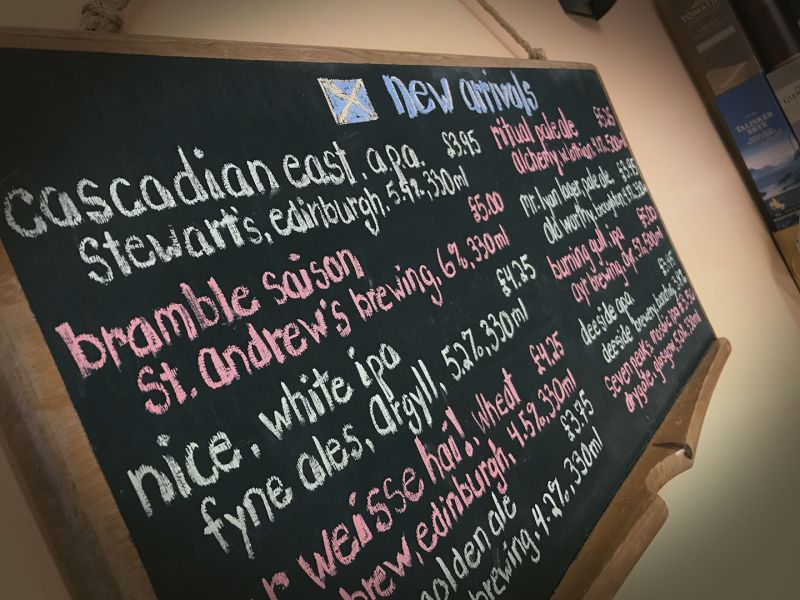 new arrivals
cascadian east, a.p.a. £3.95
Stewart's, edinburgh, 5.4%, 330ml
bramble saison £5.00
St. andrew's brewing, 6%, 330ml
nice, white ipa £4.25
fyne ales, argyll, 5.2%, 330ml
weisse hail, wheat £4.25
brew, edinburgh, 4.5%, 330ml
golden ale £3.75
brewing, 4.2%, 330ml
ritual pale ale
alchemy,
pale ale,
old worthy,
burning gull, ipa £5.00
ayr brewing, ayr,
deeside apa
deeside brewery,
seven peaks,
drygate, glasgow,
TALISKER
SKYE